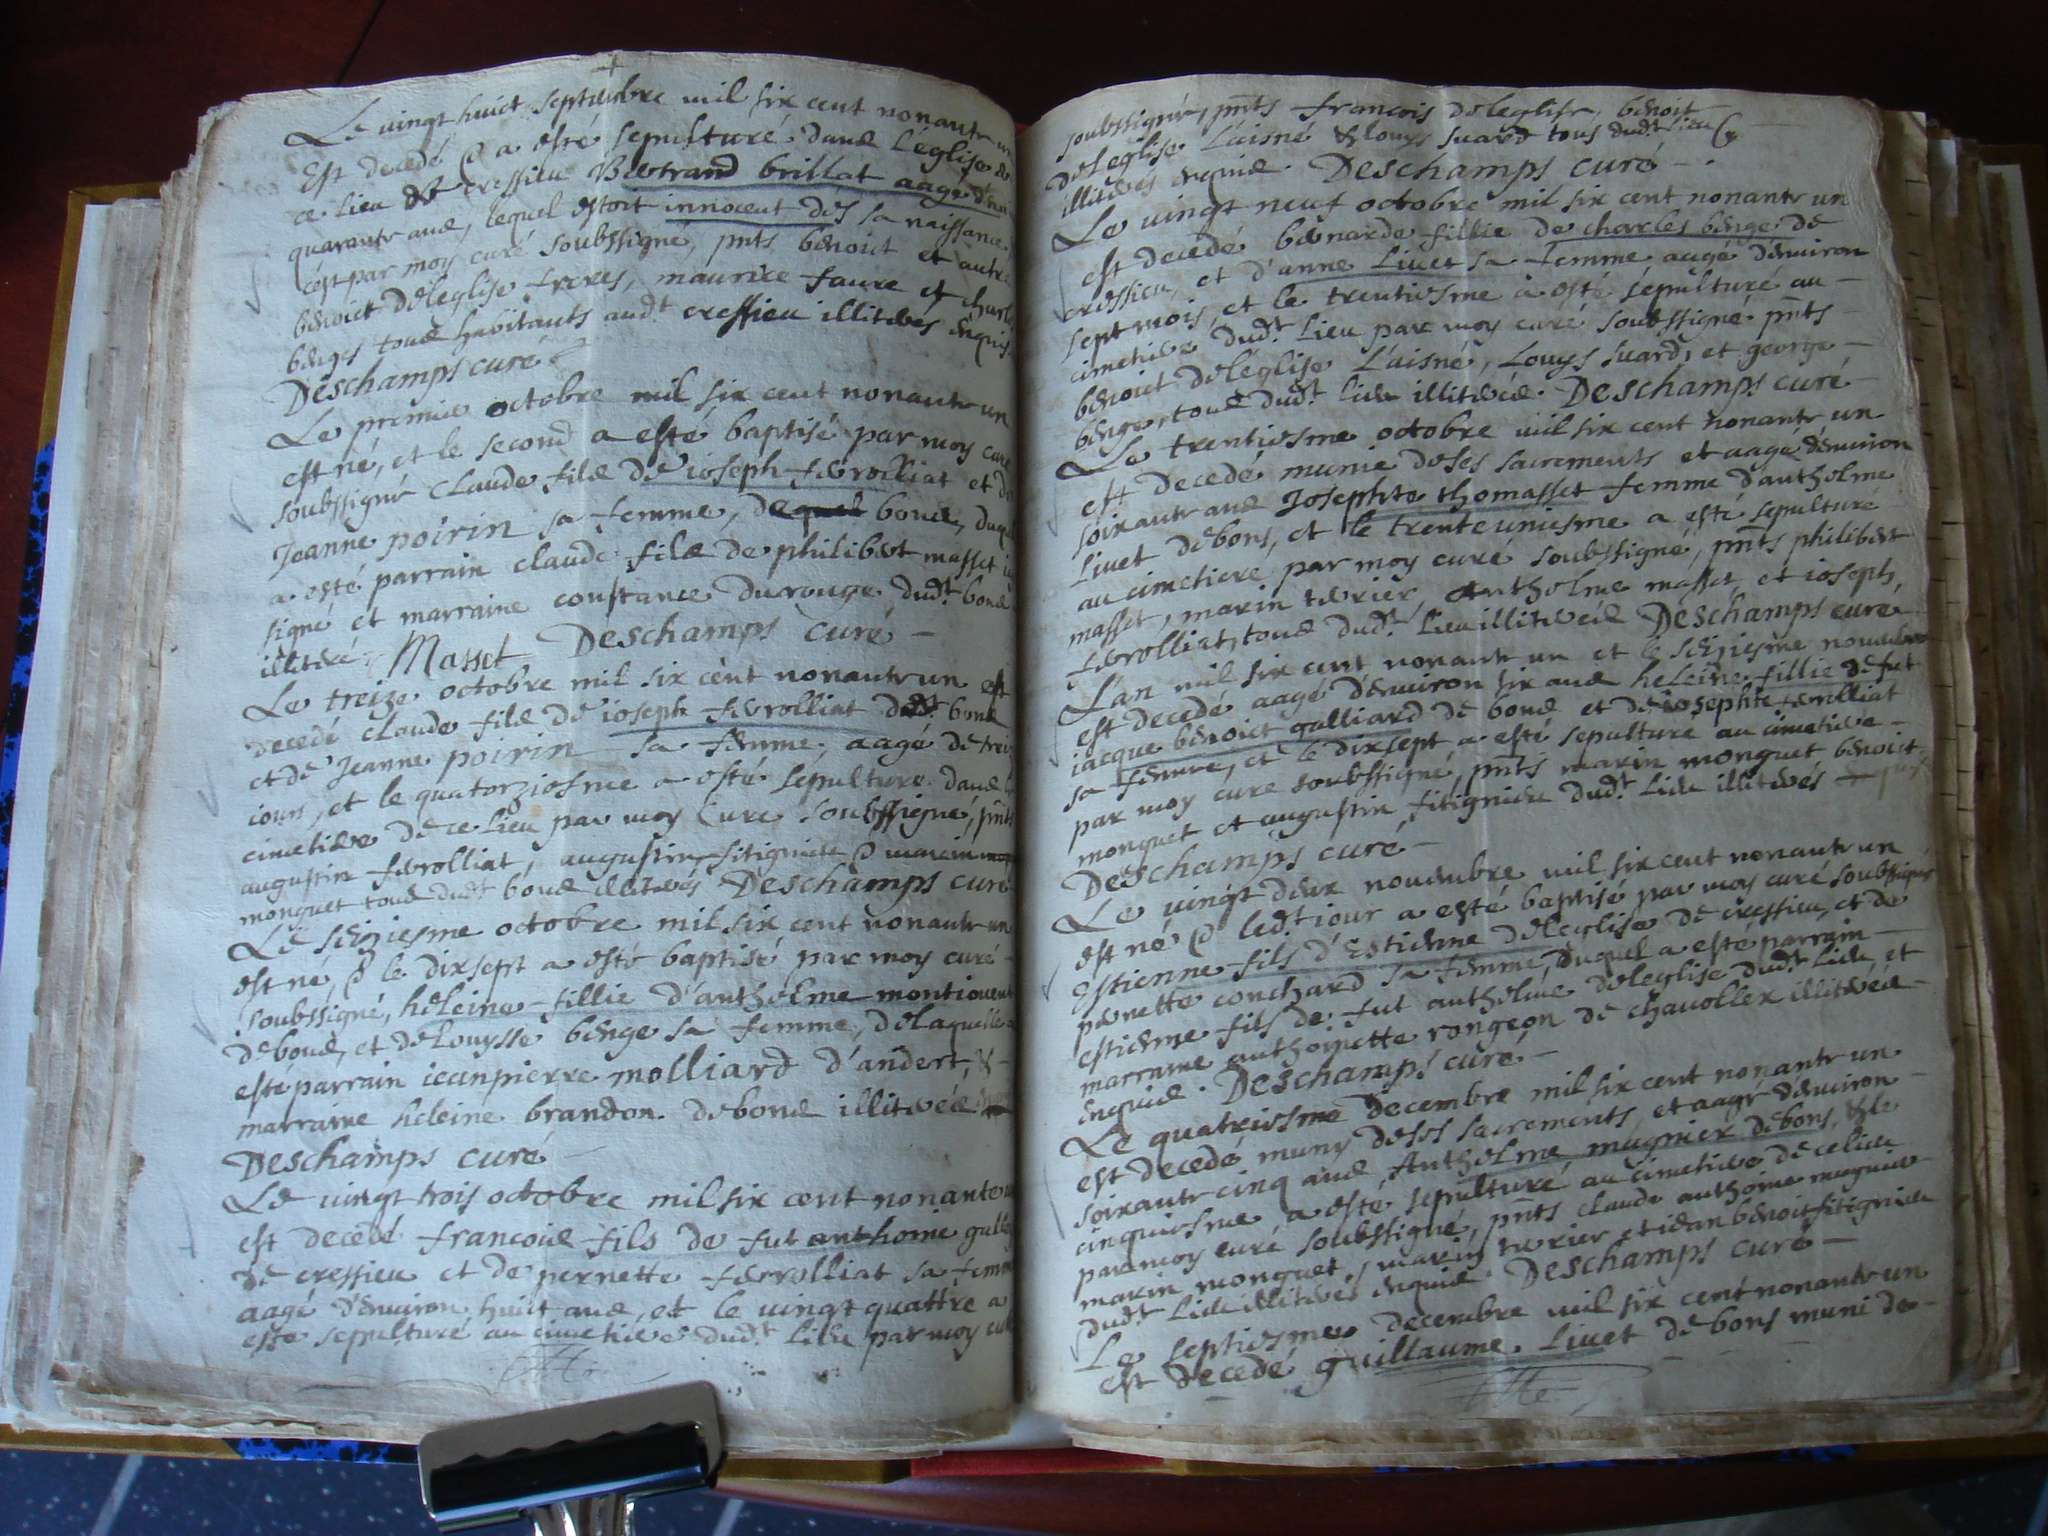 Le vingt huict septembre mil six cent nonante un
Est decedé & a esté sepulturé dans l'église de
ce lieu de cressieu Bertrand brillat aagé
quarante ans, lequel estoit innocent dés sa naissance,
par moy curé soubssigné, pnts benoict et autre
benoict deleglise freres, maurize faure et charles
benges tous habitants audt cressieu illiterés enquis
Deschamps curé
Le premier octobre mil six cent nonante un
est né, et le second a esté baptisé par moy curé
soubssigné claude fils de ioseph ferrolliat et de
Jeanne poirin sa femme, de bons, duquel
a esté parrain claude fils de philibert masset
signé et marraine constance durouge dudt bons
illiteré. Masset Deschamps curé
Le treize octobre mil six cent nonante un est
decedé claude fils de ioseph ferrolliat dudt bons
et de Jeanne poirin sa femme, aagé de treize
iours, et le quatorziesme a esté sépulturé dans le
cimetiere de ce lieu par moy curé soubssigné, pnts
augustin ferrolliat, augustin fitignieu & marin
monguet tous dudt bons illiterés Deschamps curé
Le seziesme octobre mil six cent nonante un
est né, & le dixsept a esté baptisé par moy curé
soubssigné, heleine fillie d'anthelme montiouent
de bons, et de Louysse benge sa femme, de laquelle a
esté parrain ieanpierre molliard d'andert, &
marraine heleine brandon de bons illiterés
Deschamps curé
Le vingt trois octobre mil six cent nonante un
est decedé francois fils de fut anthoine
de cressieu et de pernette ferrolliat sa femme
aagé d'environ huict ans, et le vingt quattre a
esté sepulturé au cimetiere dudt lieu par moy curé
soubssigné, pnts francois deleglise, benoit
deleglise l'aisné & louys suard tous dudt lieu
illiterés enquis. Deschamps curé
Le vingt neuf octobre mil six cent nonante un
est decedé bernarde fillie de charles benge de
cressieu, et d'anne Livet sa femme aagé d'environ
sept mois, et le trentiesme a esté sépulturé au
cimetiere dudt lieu par moy curé soubssigné pnts
benoict deléglise l'aisné, Louys suard, et george
benge, tous dudt lieu illiterés. Deschamps curé
Le trentiesme octobre mil six cent nonante un
est decedé munie de ses sacrements et aagé d'environ
soixante ans Josephte thomasset femme d'anthelme
Livet de bons, et le trenteuniesme a esté sepulturé
au cimetiere par moy curé soubssigné, pnts philibert
masset, marin terrier, Anthelme masset, et ioseph
ferrolliat, tous dudt lieu illiterés Deschamps curé
L'an mil six cent nonante un et le seiziesme novembre
est decedé aagé d'environ six ans heleine fillie de fut
iacque benoict galliard de bons et de iosephte ferrolliat
sa femme, et le dixsept a esté sepulturé au cimetiere
par moy curé soubssigné, pnts marin monguet benoict
monguet et augustin fitignieu dudt lieu illiterés
Deschamps curé
Le vingt deux novembre mil six cent nonante un
est né & ledt iour a esté baptisé par moy curé soubssigné
Estienne fils d'Estienne deleglise de cressieu, et de
pernette conchard sa femme, duquel a esté parrain
estienne fils de fut anthelme deleglise dudt lieu, et
marraine anthoinette rongeon de chavollex illiterés
enquis. Deschamps curé
Le quatriesme decembre mil six cent nonante un
est decedé muny de ses sacrements, et aagé d'environ
soixante cinq ans, Anthelme mugnier de bons, & le
cinquiesme a esté sepulturé au cimetiere de ce lieu
par moy curé soubssigné, pnts claude anthoine mugnier
marin monguet, marin terrier et iean benoit fitignieu
dudt lieu illiterés enquis. Deschamps curé
Le septiesme decembre mil six cent nonante un
est decedé guillaume Livet de bons muni de